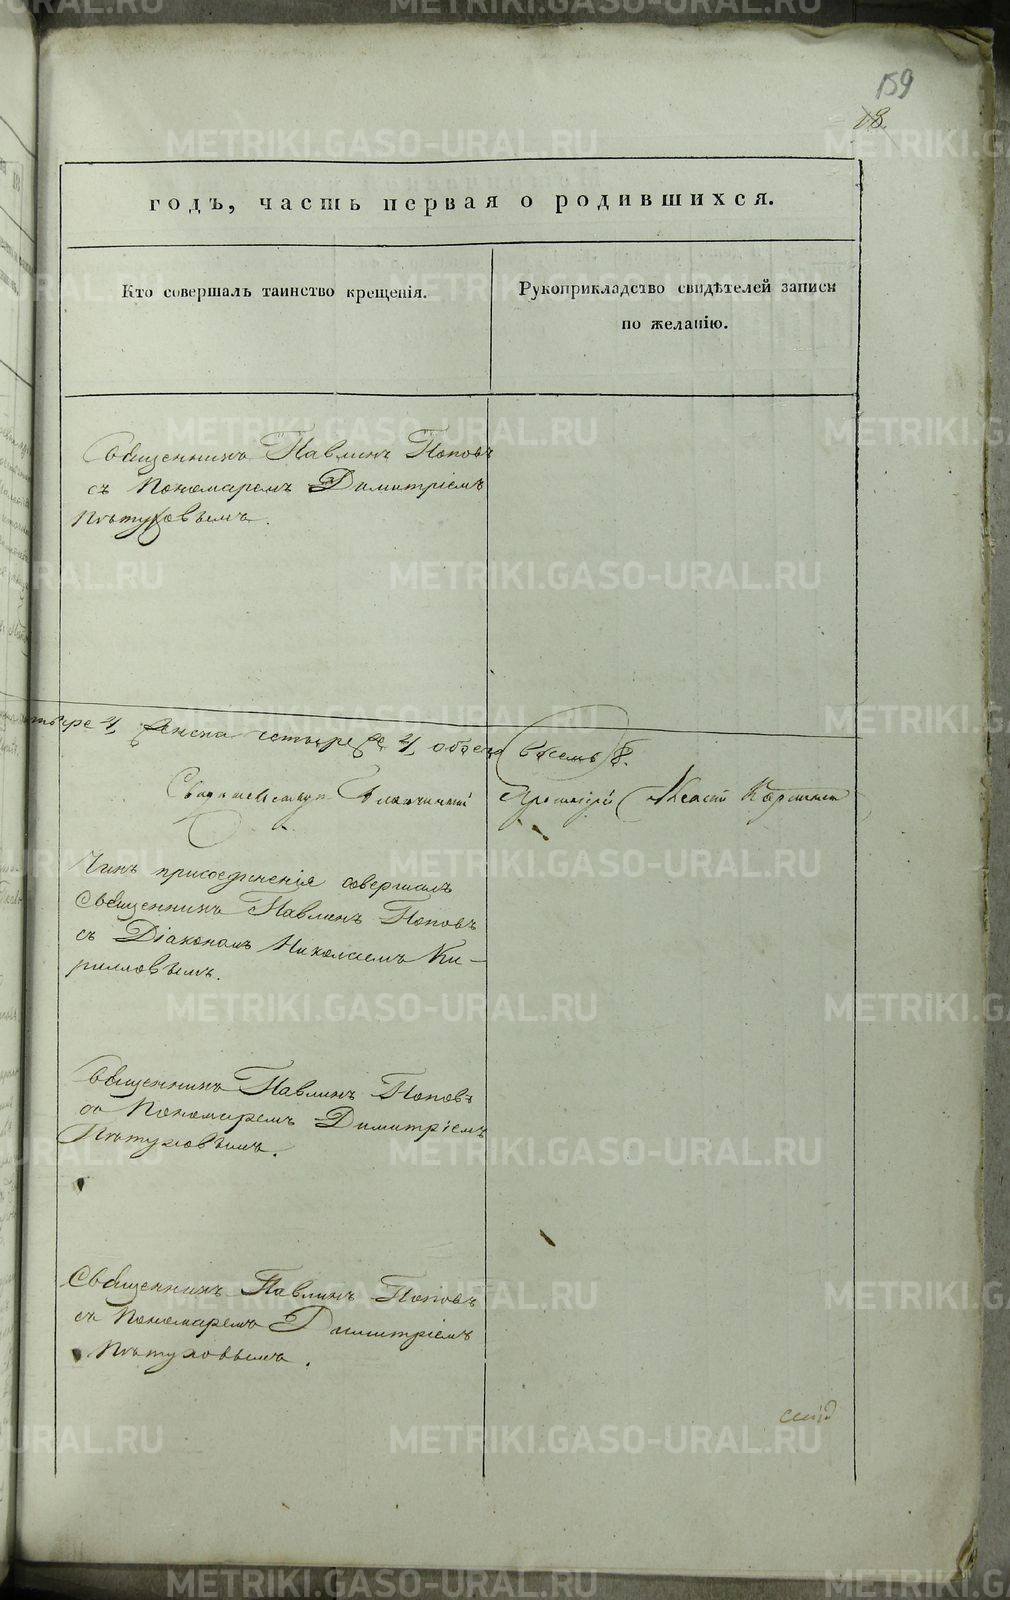 159
18.
годъ, часть первая о родившихся.
Кто совершалъ таинство крещенія.
Рукоприкладство свидѣтелей записи
по желанію.
Священникъ Павлинъ Поповъ
съ Пономаремъ Димитріемъ
Пѣтуховымъ.
женска четыре 4, обоего восемь 8.
Свидѣтельствуетъ Протоіерей
Чинъ присоединенія совершалъ
Священникъ Павлинъ Поповъ
съ Діакономъ Николаемъ Ки-
рилловымъ.
Священникъ Павлинъ Поповъ
съ Пономаремъ Димитріемъ
Пѣтуховымъ.
Священникъ Павлинъ Поповъ
съ Пономаремъ Димитріемъ
Пѣтуховымъ.
METRIKI.GASO-URAL.RU